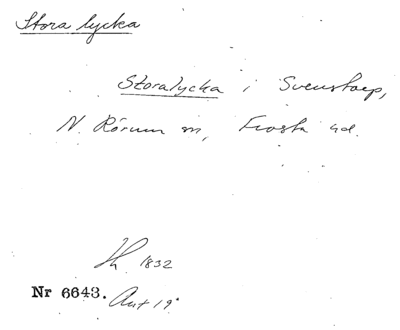 Stora lycka
Storalycka i Svenstorp,
N. Rörum sn, Frosta hd.
1832
Nr 6643. Ant 19